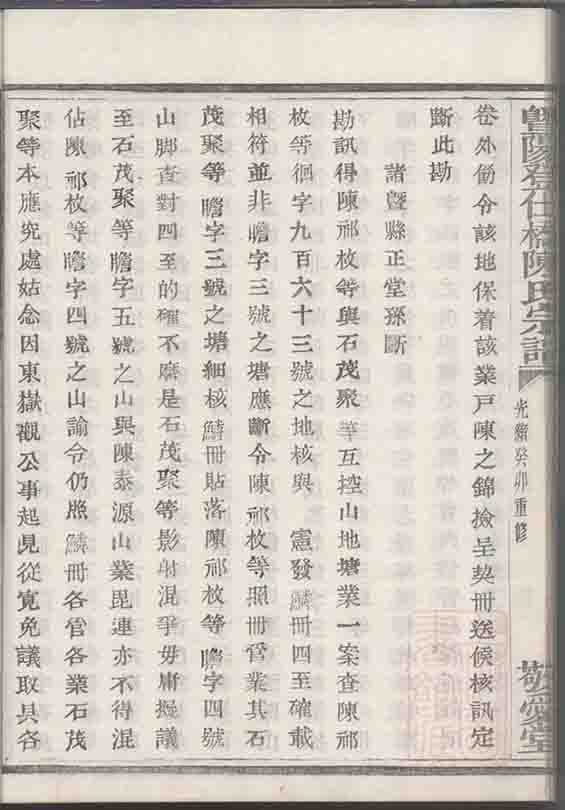 暨陽登仕橋陳氏宗譜
光緒癸卯重修
敬愛堂
卷外飭令該地保着該業戶陳之錦撿呈契冊送候核訊定
斷此勘
諸暨縣正堂孫斷
勘訊得陳祁枚等與石茂聚等互控山地塘業一案查陳祁
枚等徊字九百六十三號之地核與　憲發鱗冊四至確載
相符並非瞻字三號之塘應斷令陳祁枚等照冊管業其石
茂聚等瞻字三號之塘細核鱗冊貼落陳祁枚等瞻字四號
山脚查對四至的確不穈是石茂聚等影射混爭毋庸擬議
至石茂聚等瞻字五號之山與陳泰源山業毘連亦不得混
佔陳祁枚等瞻字四號之山諭令仍照鱗冊各管各業石茂
聚等本應究處姑念因東嶽觀公事起見從寬免議取具各